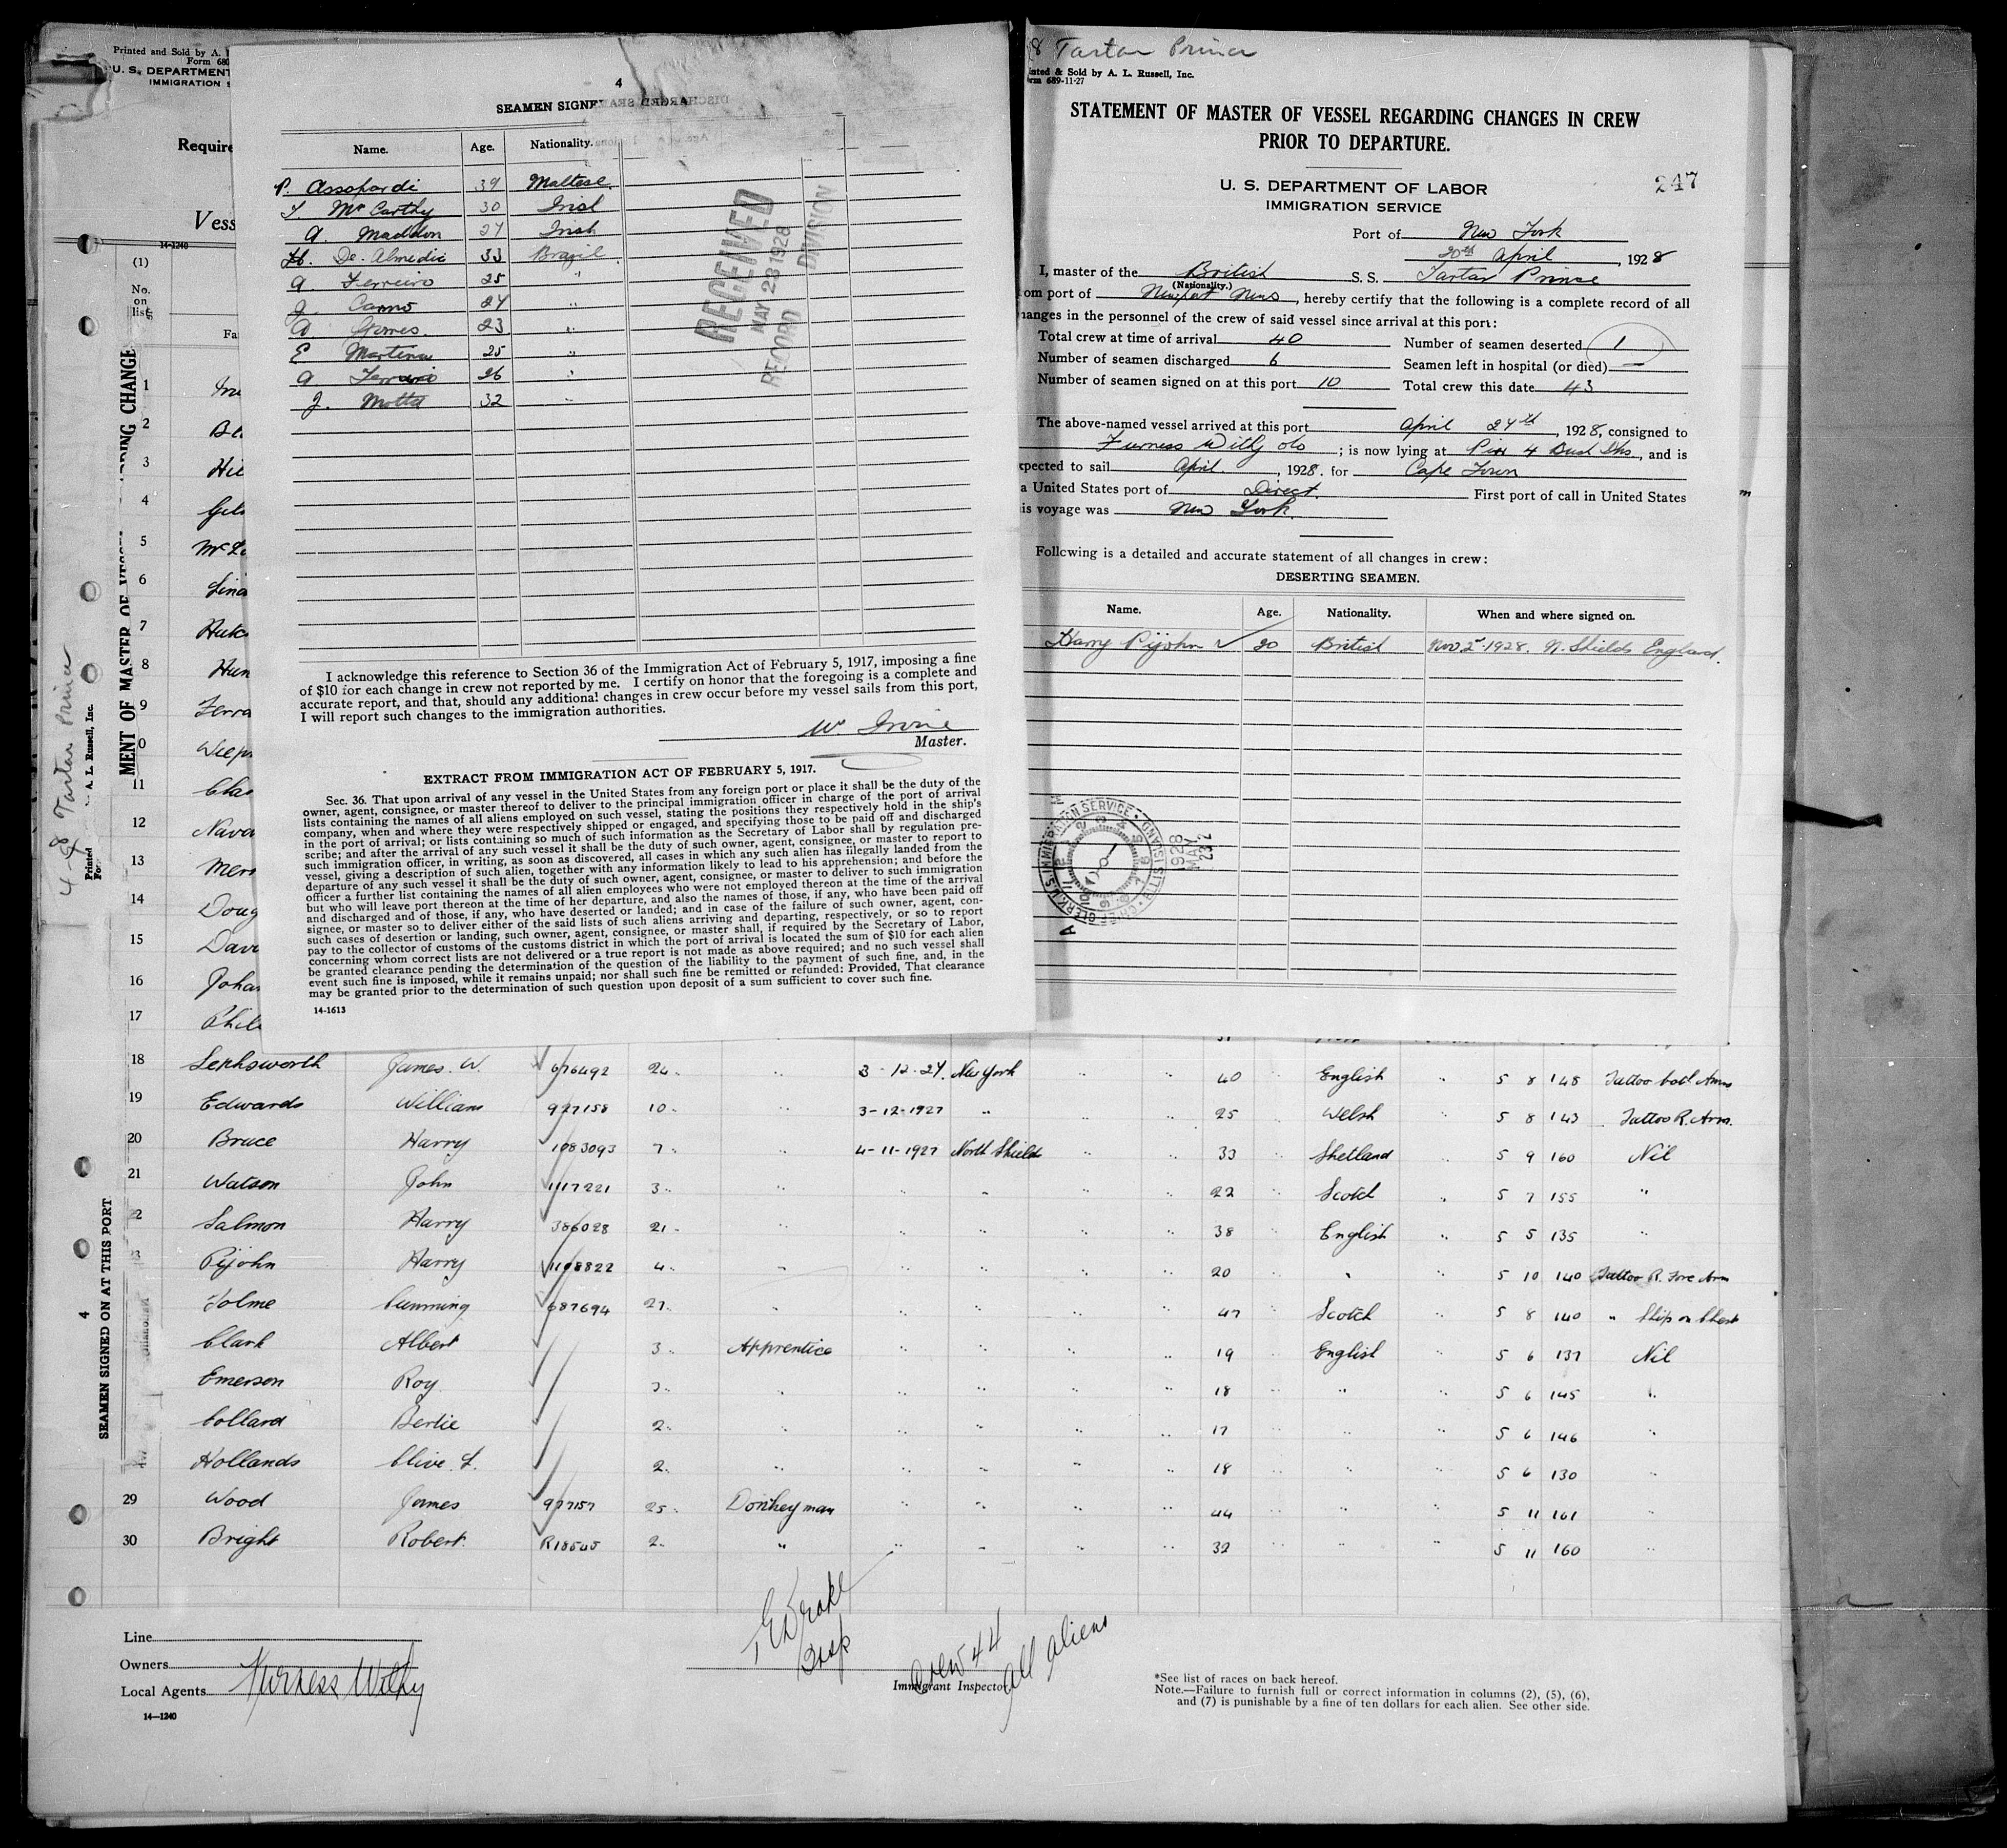 Printed and Sold by A.
Form 680
U. S. DEPARTMENT
IMMIGRATION
Require
Vess
14-1240
(1)
No.
on
list
Fa
MENT OF MASTER OF VESSEL
RDING CHANGE
4-28 Tartar Prince
Printed
A. L. Russell, Inc.
1
2
Be
3
Hic
4
5
McL
6
7
Hutc
8
Hun
9
Ferra
0
11
Clas
12
Nava
13
14
Doug
15
Davi
16
Johan
17
Phil
4
SEAMEN SIGNE
DISCHARGED SEA
Name. Age. Nationality.
P. Assopardi 39 Maltese.
T McCarthy 30 Irish
A. Maddon 27 Irish
H. De. Almedia 33 Brazil
A. Ferreiro 25 "
J. Camo 24 "
D Gomes. 23 "
E Martina 25 "
A Ferraro 26 "
J. Motta 32 "
RECEIVED
MAY 23 1928
RECORD DIVISION
I acknowledge this reference to Section 36 of the Immigration Act of February 5, 1917, imposing a fine
of $10 for each change in crew not reported by me. I certify on honor that the foregoing is a complete and
accurate report, and that, should any additional changes in crew occur before my vessel sails from this port,
I will report such changes to the immigration authorities.
W Irvine
Master.
EXTRACT FROM IMMIGRATION ACT OF FEBRUARY 5, 1917.
Sec. 36. That upon arrival of any vessel in the United States from any foreign port or place it shall be the duty of the
owner, agent, consignee, or master thereof to deliver to the principal immigration officer in charge of the port of arrival
lists containing the names of all aliens employed on such vessel, stating the positions they respectively hold in the ship's
company, when and where they were respectively shipped or engaged, and specifying those to be paid off and discharged
in the port of arrival; or lists containing so much of such information as the Secretary of Labor shall by regulation pre-
scribe; and after the arrival of any such vessel it shall be the duty of such owner, agent, consignee, or master to report to
such immigration officer, in writing, as soon as discovered, all cases in which any such alien has illegally landed from the
vessel, giving a description of such alien, together with any information likely to lead to his apprehension; and before the
departure of any such vessel it shall be the duty of such owner, agent, consignee, or master to deliver to such immigration
officer a further list containing the names of all alien employees who were not employed thereon at the time of the arrival
but who will leave port thereon at the time of her departure, and also the names of those, if any, who have been paid off
and discharged and of those, if any, who have deserted or landed; and in case of the failure of such owner, agent, con-
signee, or master so to deliver either of the said lists of such aliens arriving and departing, respectively, or so to report
such cases of desertion or landing, such owner, agent, consignee, or master shall, if required by the Secretary of Labor,
pay to the collector of customs of the customs district in which the port of arrival is located the sum of $10 for each alien
concerning whom correct lists are not delivered or a true report is not made as above required; and no such vessel shall
be granted clearance pending the determination of the question of the liability to the payment of such fine, and, in the
event such fine is imposed, while it remains unpaid; nor shall such fine be remitted or refunded: Provided, That clearance
may be granted prior to the determination of such question upon deposit of a sum sufficient to cover such fine.
14-1613
8 Tartar Prince
inted & Sold by A. L. Russell, Inc.
orm 689-11-27
STATEMENT OF MASTER OF VESSEL REGARDING CHANGES IN CREW
PRIOR TO DEPARTURE.
U. S. DEPARTMENT OF LABOR
IMMIGRATION SERVICE
247
Port of New York
20th April, 1928
I, master of the British S. S. Tartar Prince
(Nationality.)
om port of Newport News, hereby certify that the following is a complete record of all
hanges in the personnel of the crew of said vessel since arrival at this port:
Total crew at time of arrival 40 Number of seamen deserted 1
Number of seamen discharged 6 Seamen left in hospital (or died) —
Number of seamen signed on at this port 10 Total crew this date 43
The above-named vessel arrived at this port April 24th, 1928, consigned to
Furness Withy Co; is now lying at Pier 4 Bush Dks, and is
xpected to sail April, 1928. for Cape Town
a United States port of Direct. First port of call in United States
is voyage was New York.
Following is a detailed and accurate statement of all changes in crew:
DESERTING SEAMEN.
Name. Age. Nationality. When and where signed on.
Harry Pijohn ✓ 20 British Nov 2nd 1928. N. Shields England.
U.S. IMMIGRATION SERVICE
CHIEF CLERK
1928
MAY
23
18 Lerhsworth James. W. 676492 24 " 3-12-27. New York " " 40 English " 5 8 148 Tattoo both Arms
19 Edwards William 927158 10 " 3-12-1927 " " " 25 Welsh " 5 8 143 Tattoo R. Arm.
20 Bruce Harry 1083093 7 " 4-11-1927 North Shields " " 33 Shetland " 5 9 160 Nil
21 Watson John 1117221 3 " " " " " 22 Scotch " 5 7 155 "
22 Salmon Harry 386028 21 " " " " " 38 English " 5 5 135 "
23 Pijohn Harry 1108822 4 " " " " " 20 " " 5 10 140 Tattoo R. Fore Arm
Tolme Cumming 687694 27 " " " " " 47 Scotch " 5 8 140 " Ship on Chest
Clark Albert 3 Apprentice " " " " 19 English " 5 6 137 Nil
Emerson Roy 3 " " " " " 18 " " 5 6 145 "
Collard Bertie 2 " " " " " 17 " " 5 6 146 "
Hollands Clive. L. 2 " " " " " 18 " " 5 6 130 "
29 Wood James 927157 25 Donkeyman " " " " 44 " " 5 11 161 "
30 Bright Robert R18545 2 " " " " " 32 " " 5 11 160 "
4
SEAMEN SIGNED ON AT THIS PORT
Line
Owners
Local Agents Furness Withy
14—1240
Drake
Insp
Crew 44
all aliens
Immigrant Inspector
*See list of races on back hereof.
Note.—Failure to furnish full or correct information in columns (2), (5), (6),
and (7) is punishable by a fine of ten dollars for each alien. See other side.